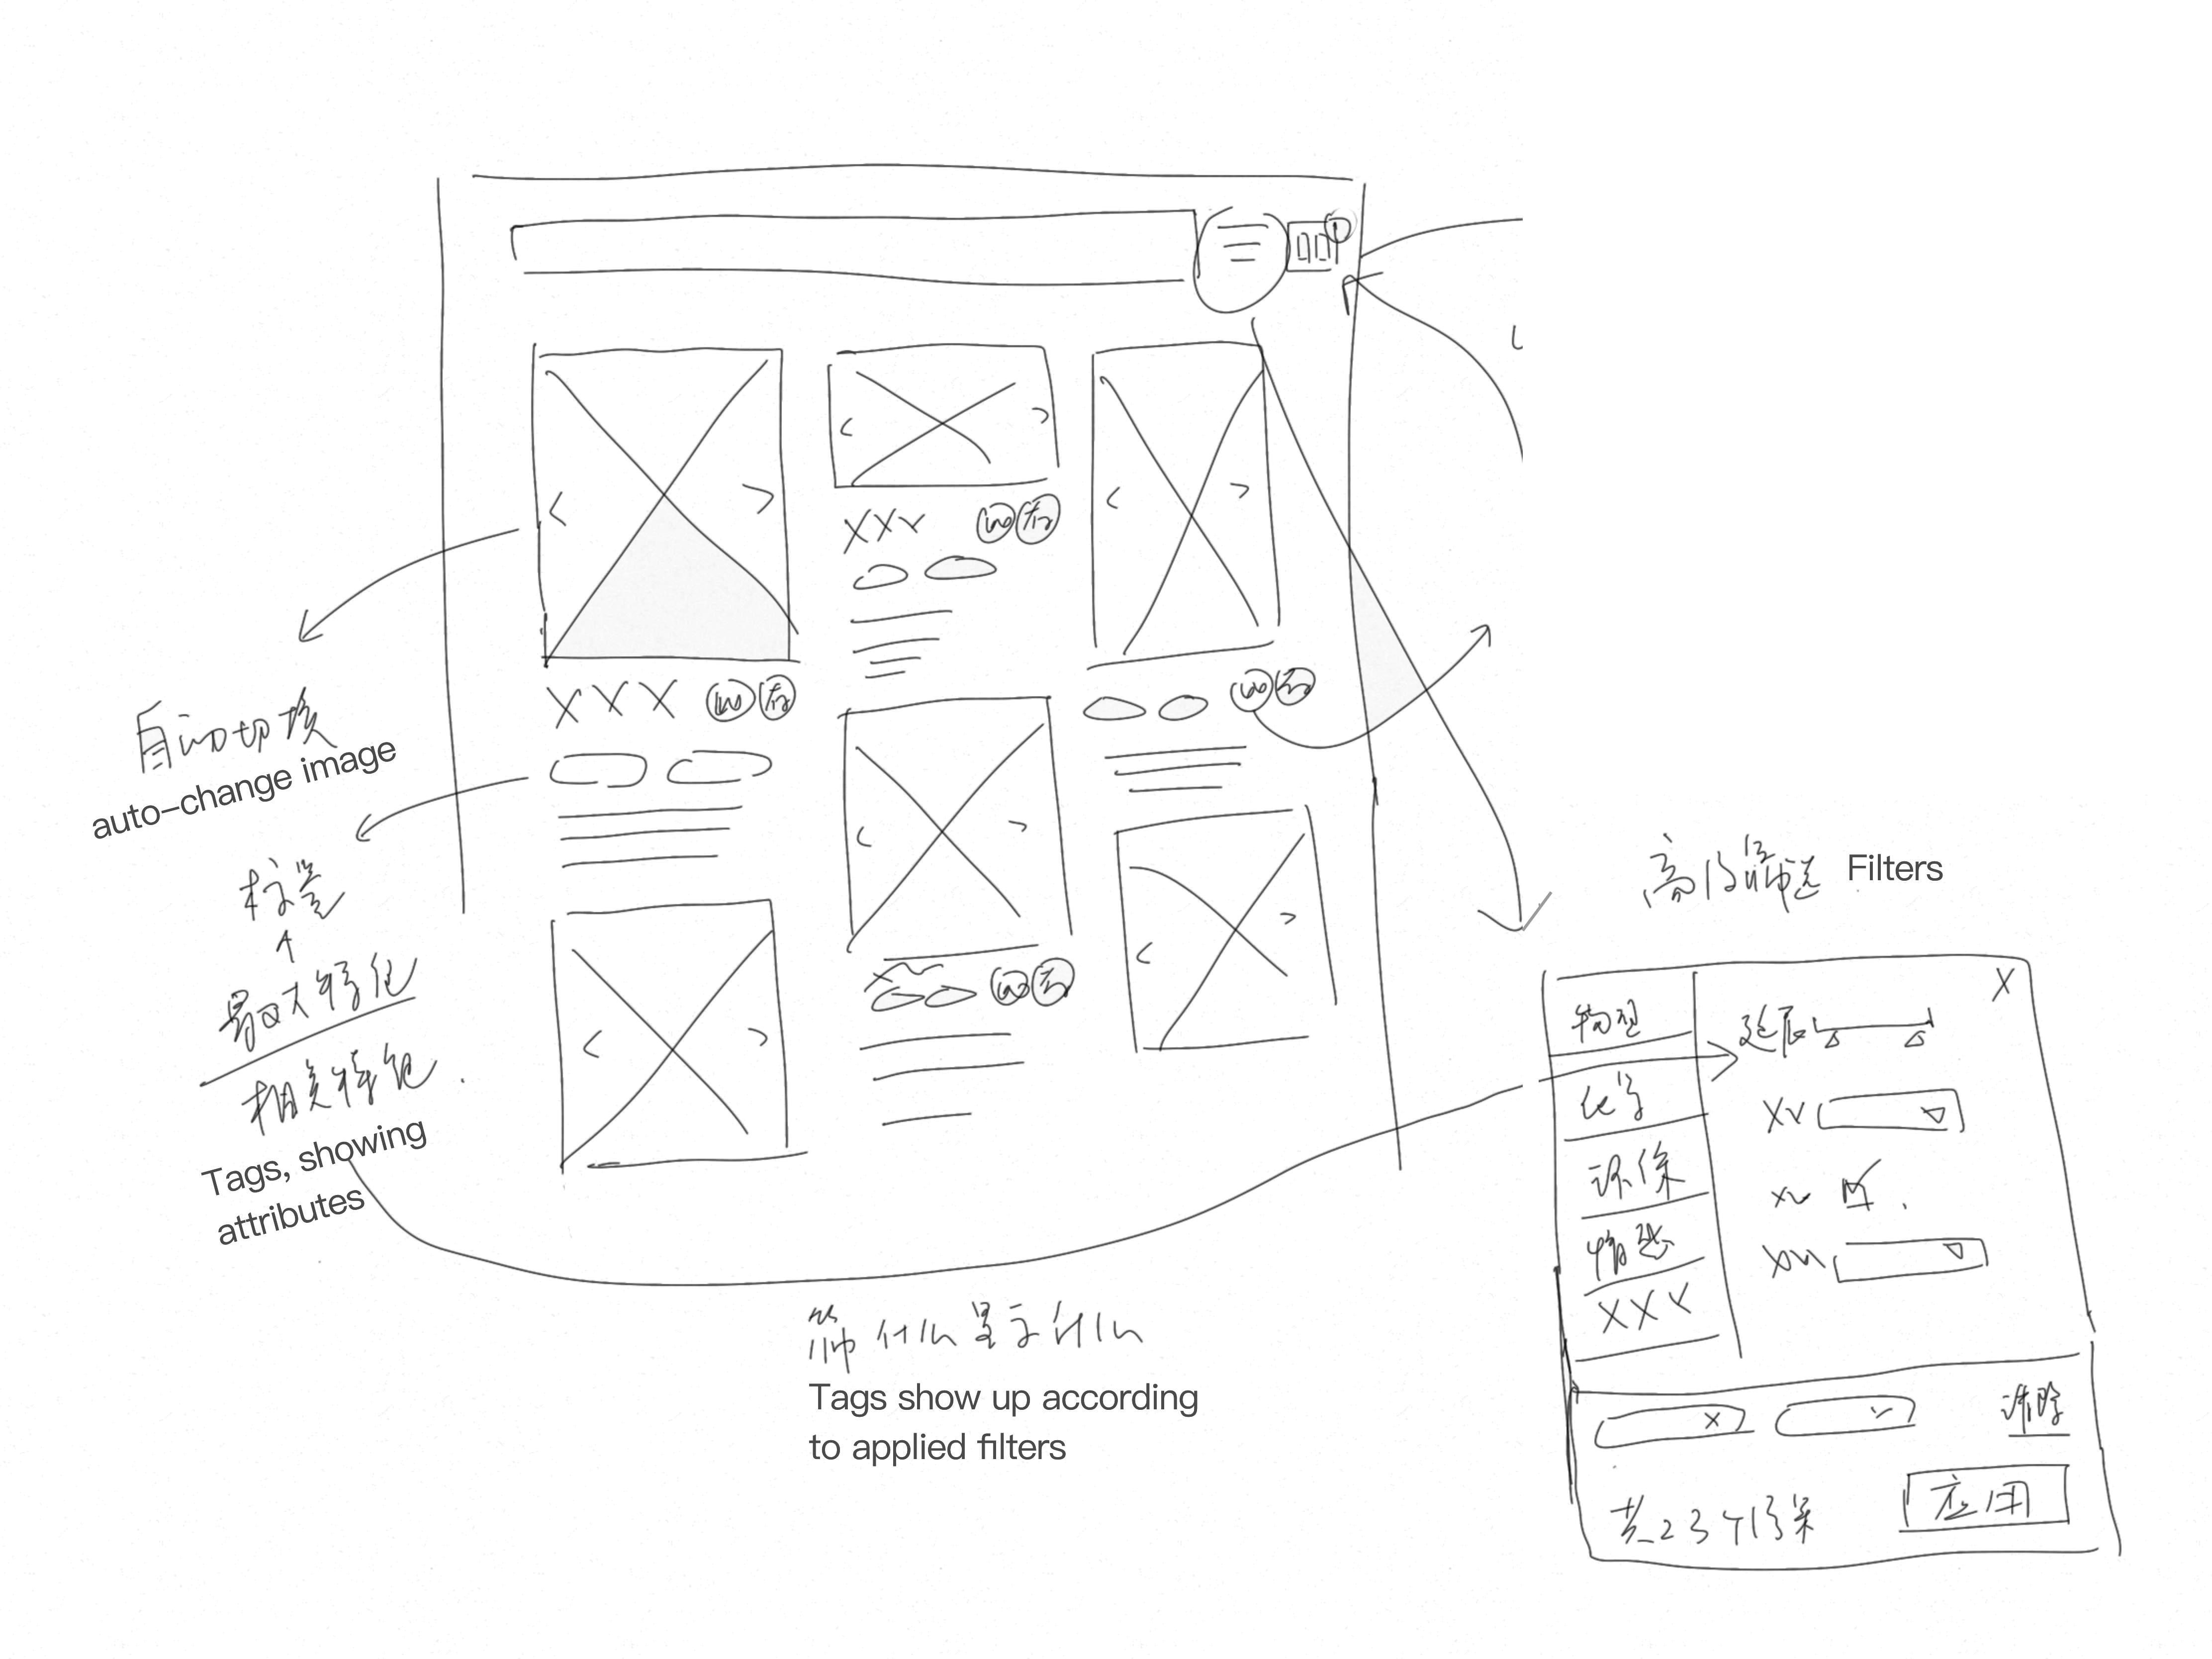 XXX
XXX
自动切换
auto-change image
标签
最大特色
相关特色.
Tags, showing
attributes
筛什么显示什么
Tags show up according
to applied filters
高级筛选 Filters
X
物理
延展
化学
XX
环保
情感
XXX
X
清除
应用